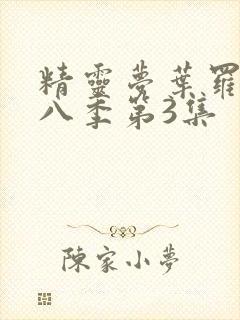 精靈夢葉羅
八季第3集
陳家小夢